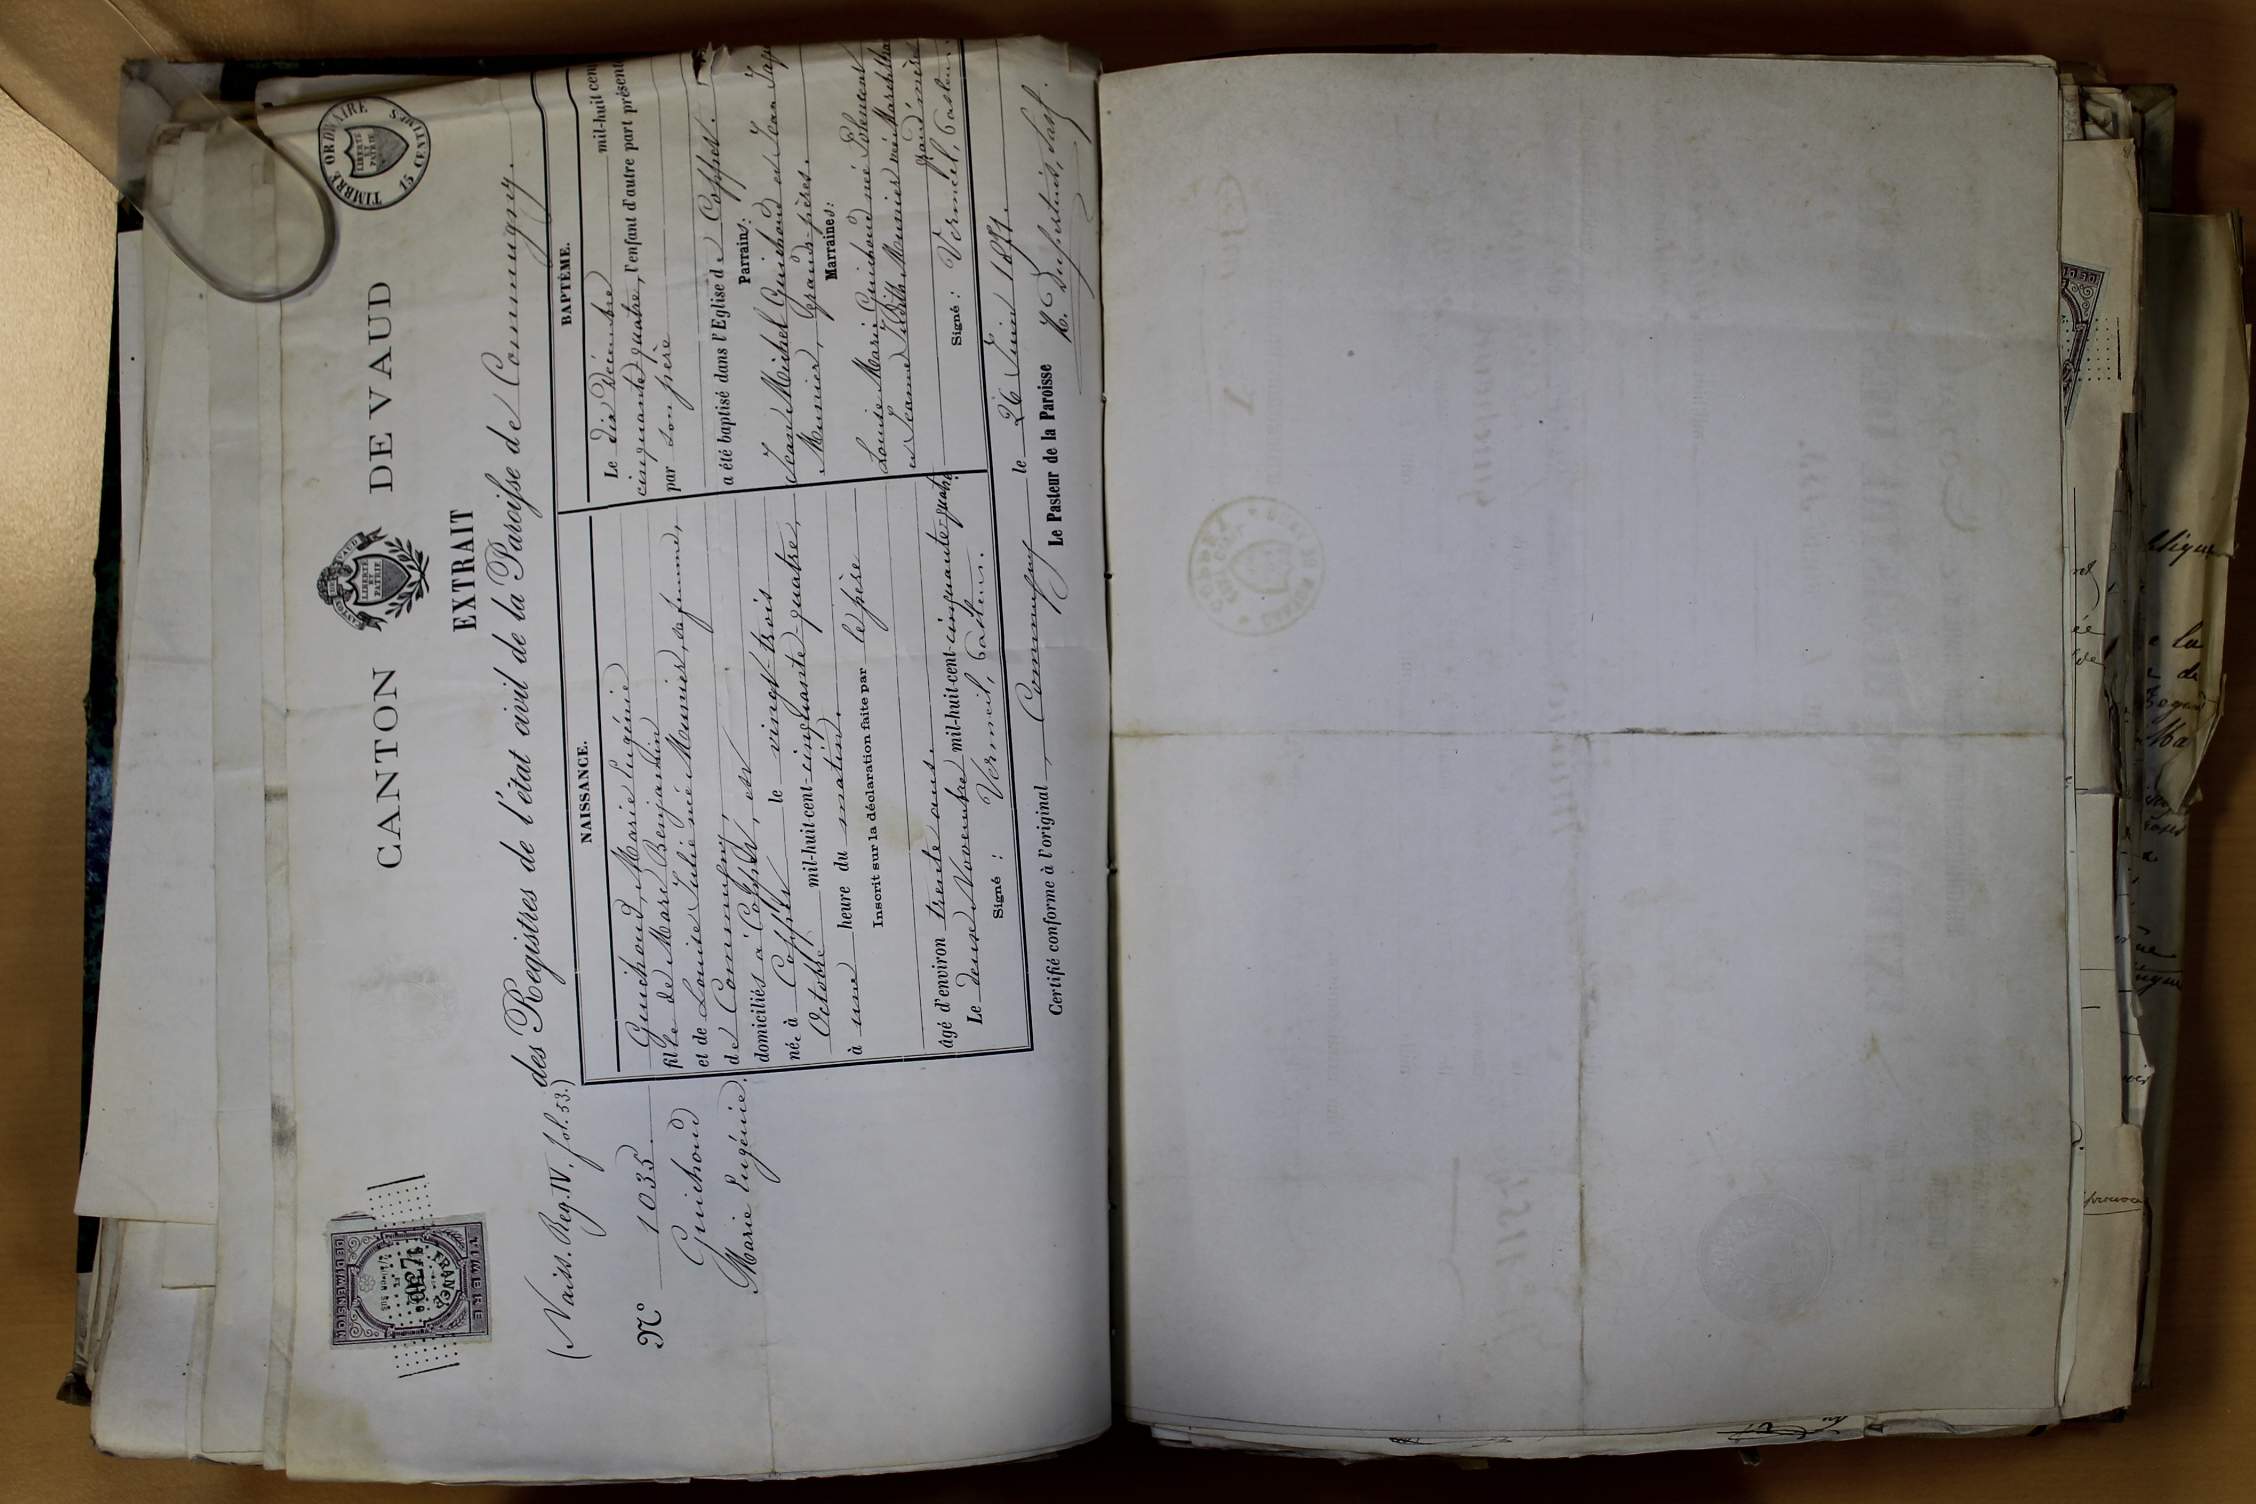 TIMBRE ORDINAIRE
15 CENTIMES
LIBERTÉ
ET
PATRIE
CANTON DE VAUD
CANTON DE VAUD
LIBERTÉ
ET
PATRIE
EXTRAIT
(Naiss. Reg. IV. fol. 53.)
des Registres de l'état civil de la Paroisse de Commugny.
TIMBRE
DEDIMENSION
FRANCE
2/10mes EN SUS
N° 1035.
Guichoud
Marie Eugénie.
NAISSANCE.
Guichoud, Marie Eugénie
fille de Marc Benjamin
et de Louise Julie née Meunier, défunnd,
de Commugny,
domiciliés à Coppet, est
née à Coppet le vingt-trois
Octobre mil-huit-cent-cinquante quatre,
à une heure du matin.
Inscrit sur la déclaration faite par le père
âgé d'environ trente ans.
Le douze Novembre mil-huit-cent-cinquante-quatre
Signé : Vermeil, Pasteur.
BAPTÊME.
Le dix Décembre mil-huit cent
cinquante quatre, l'enfant d'autre part présent
par son père
a été baptisé dans l'Eglise de Coppet.
Parrains:
Jean Michel Guichoud et Jean Jaq
Meunier, Grands-pères.
Marraines:
Louise Marie Guichoud née
et Jeanne Judith Meunier née
grand'mères
Signé : Vermeil, Pasteur.
Certifié conforme à l'original, Commugny le 26 Juin 1877.
Le Pasteur de la Paroisse